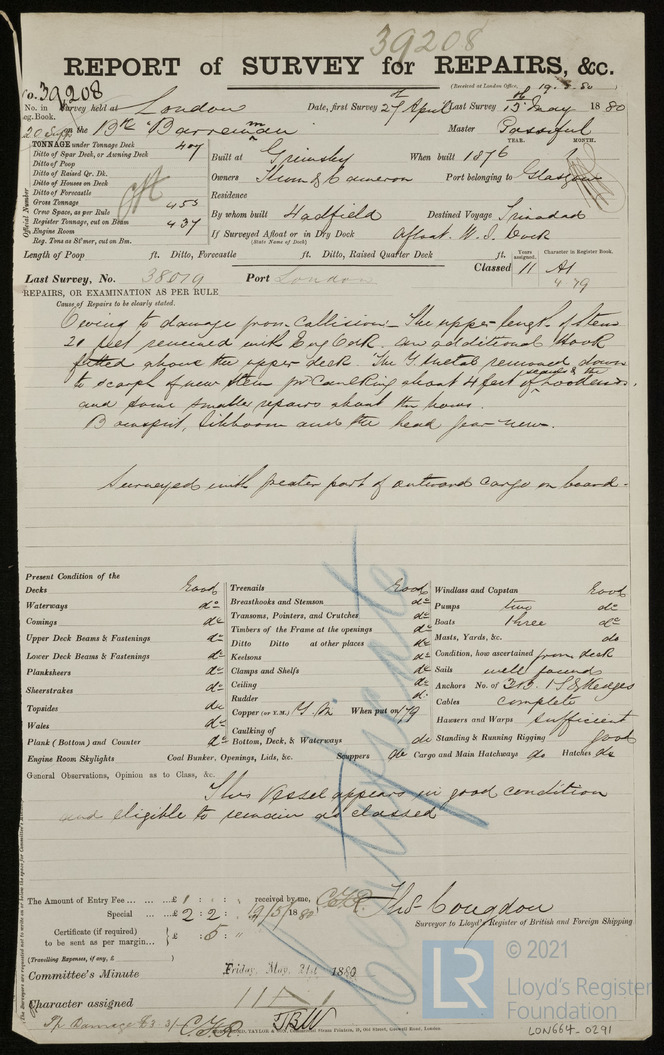 39208
REPORT of SURVEY for REPAIRS, &c.
(Received at London Office, 19.5.80
No. 39208
No. in Survey held at London Date, first Survey 27th April Last Survey 13th May 1880
Reg. Book.
on the Bk Barreman Master
TONNAGE under Tonnage Deck 407
YEAR. MONTH.
Ditto of Spar Deck, or Awning Deck
Built at Grimsby When built 1876
Ditto of Poop
Ditto of Raised Qr. Dk.
Owners & Cameron Port belonging to Glasgow
Ditto of Houses on Deck
Ditto of Forecastle
Residence
Gross Tonnage 453
Crew Space, as per Rule
By whom built Hadfield Destined Voyage Trinidad
Register Tonnage, cut on Beam 437
Engine Room
If Surveyed Afloat or in Dry Dock Afloat. W. I. Dock
(State Name of Dock)
Reg. Tons as St'mer, cut on Bm.
Official Number
Length of Poop ft. Ditto, Forecastle ft. Ditto, Raised Quarter Deck ft.
Years assigned. Character in Register Book.
Classed 11 A1
4 79
Last Survey, No. 38019 Port London
REPAIRS, OR EXAMINATION AS PER RULE
Cause of Repairs to be clearly stated.
Owing to damage from Collision - The upper length of Stem
20 feet renewed with Eng Oak. an additional Hook
fitted above the upper deck. The Y. Metal removed down
to scarph of new Stem for Caulking about 4 feet of the hoodends.
and some smaller repairs about the bows.
Bowsprit, Jibboom and the head gear new.
Surveyed with greater part of outward Cargo on board.
Present Condition of the
Decks Good
Waterways do
Comings do
Upper Deck Beams & Fastenings do
Lower Deck Beams & Fastenings do
Planksheers do
Sheerstrakes do
Topsides do
Wales do
Plank (Bottom) and Counter do
Engine Room Skylights
Treenails Good
Breasthooks and Stemson do
Transoms, Pointers, and Crutches do
Timbers of the Frame at the openings do
Ditto Ditto at other places do
Keelsons do
Clamps and Shelfs do
Ceiling do
Rudder do
Copper (or Y.M.) Y. M When put on 79
Caulking of
Bottom, Deck, & Waterways do
Coal Bunker, Openings, Lids, &c. Scuppers do Cargo and Main Hatchways do Hatches do
Windlass and Capstan Good
Pumps two do
Boats three do
Masts, Yards, &c. do
Condition, how ascertained from deck
Sails well found
Anchors No. of 3 B. 1 S & 2 Kedges
Cables complete
Hawsers and Warps sufficient
Standing & Running Rigging good
General Observations, Opinion as to Class, &c.
This Vessel appears in good condition
and eligible to remain as classed
Certificate
The Amount of Entry Fee ... ... £ 1 : : received by me,
Special ... ... £ 2 : 2 : 19/5/1880
Certificate (if required) to be sent as per margin... £ : 5 : "
(Travelling Expenses, if any, £ )
Thos Congdon
Surveyor to Lloyd's Register of British and Foreign Shipping
Committee's Minute Friday, May, 21st 1880
Character assigned 11 A 1
© 2021
LR
Lloyd's Register
Foundation
LON664-0291